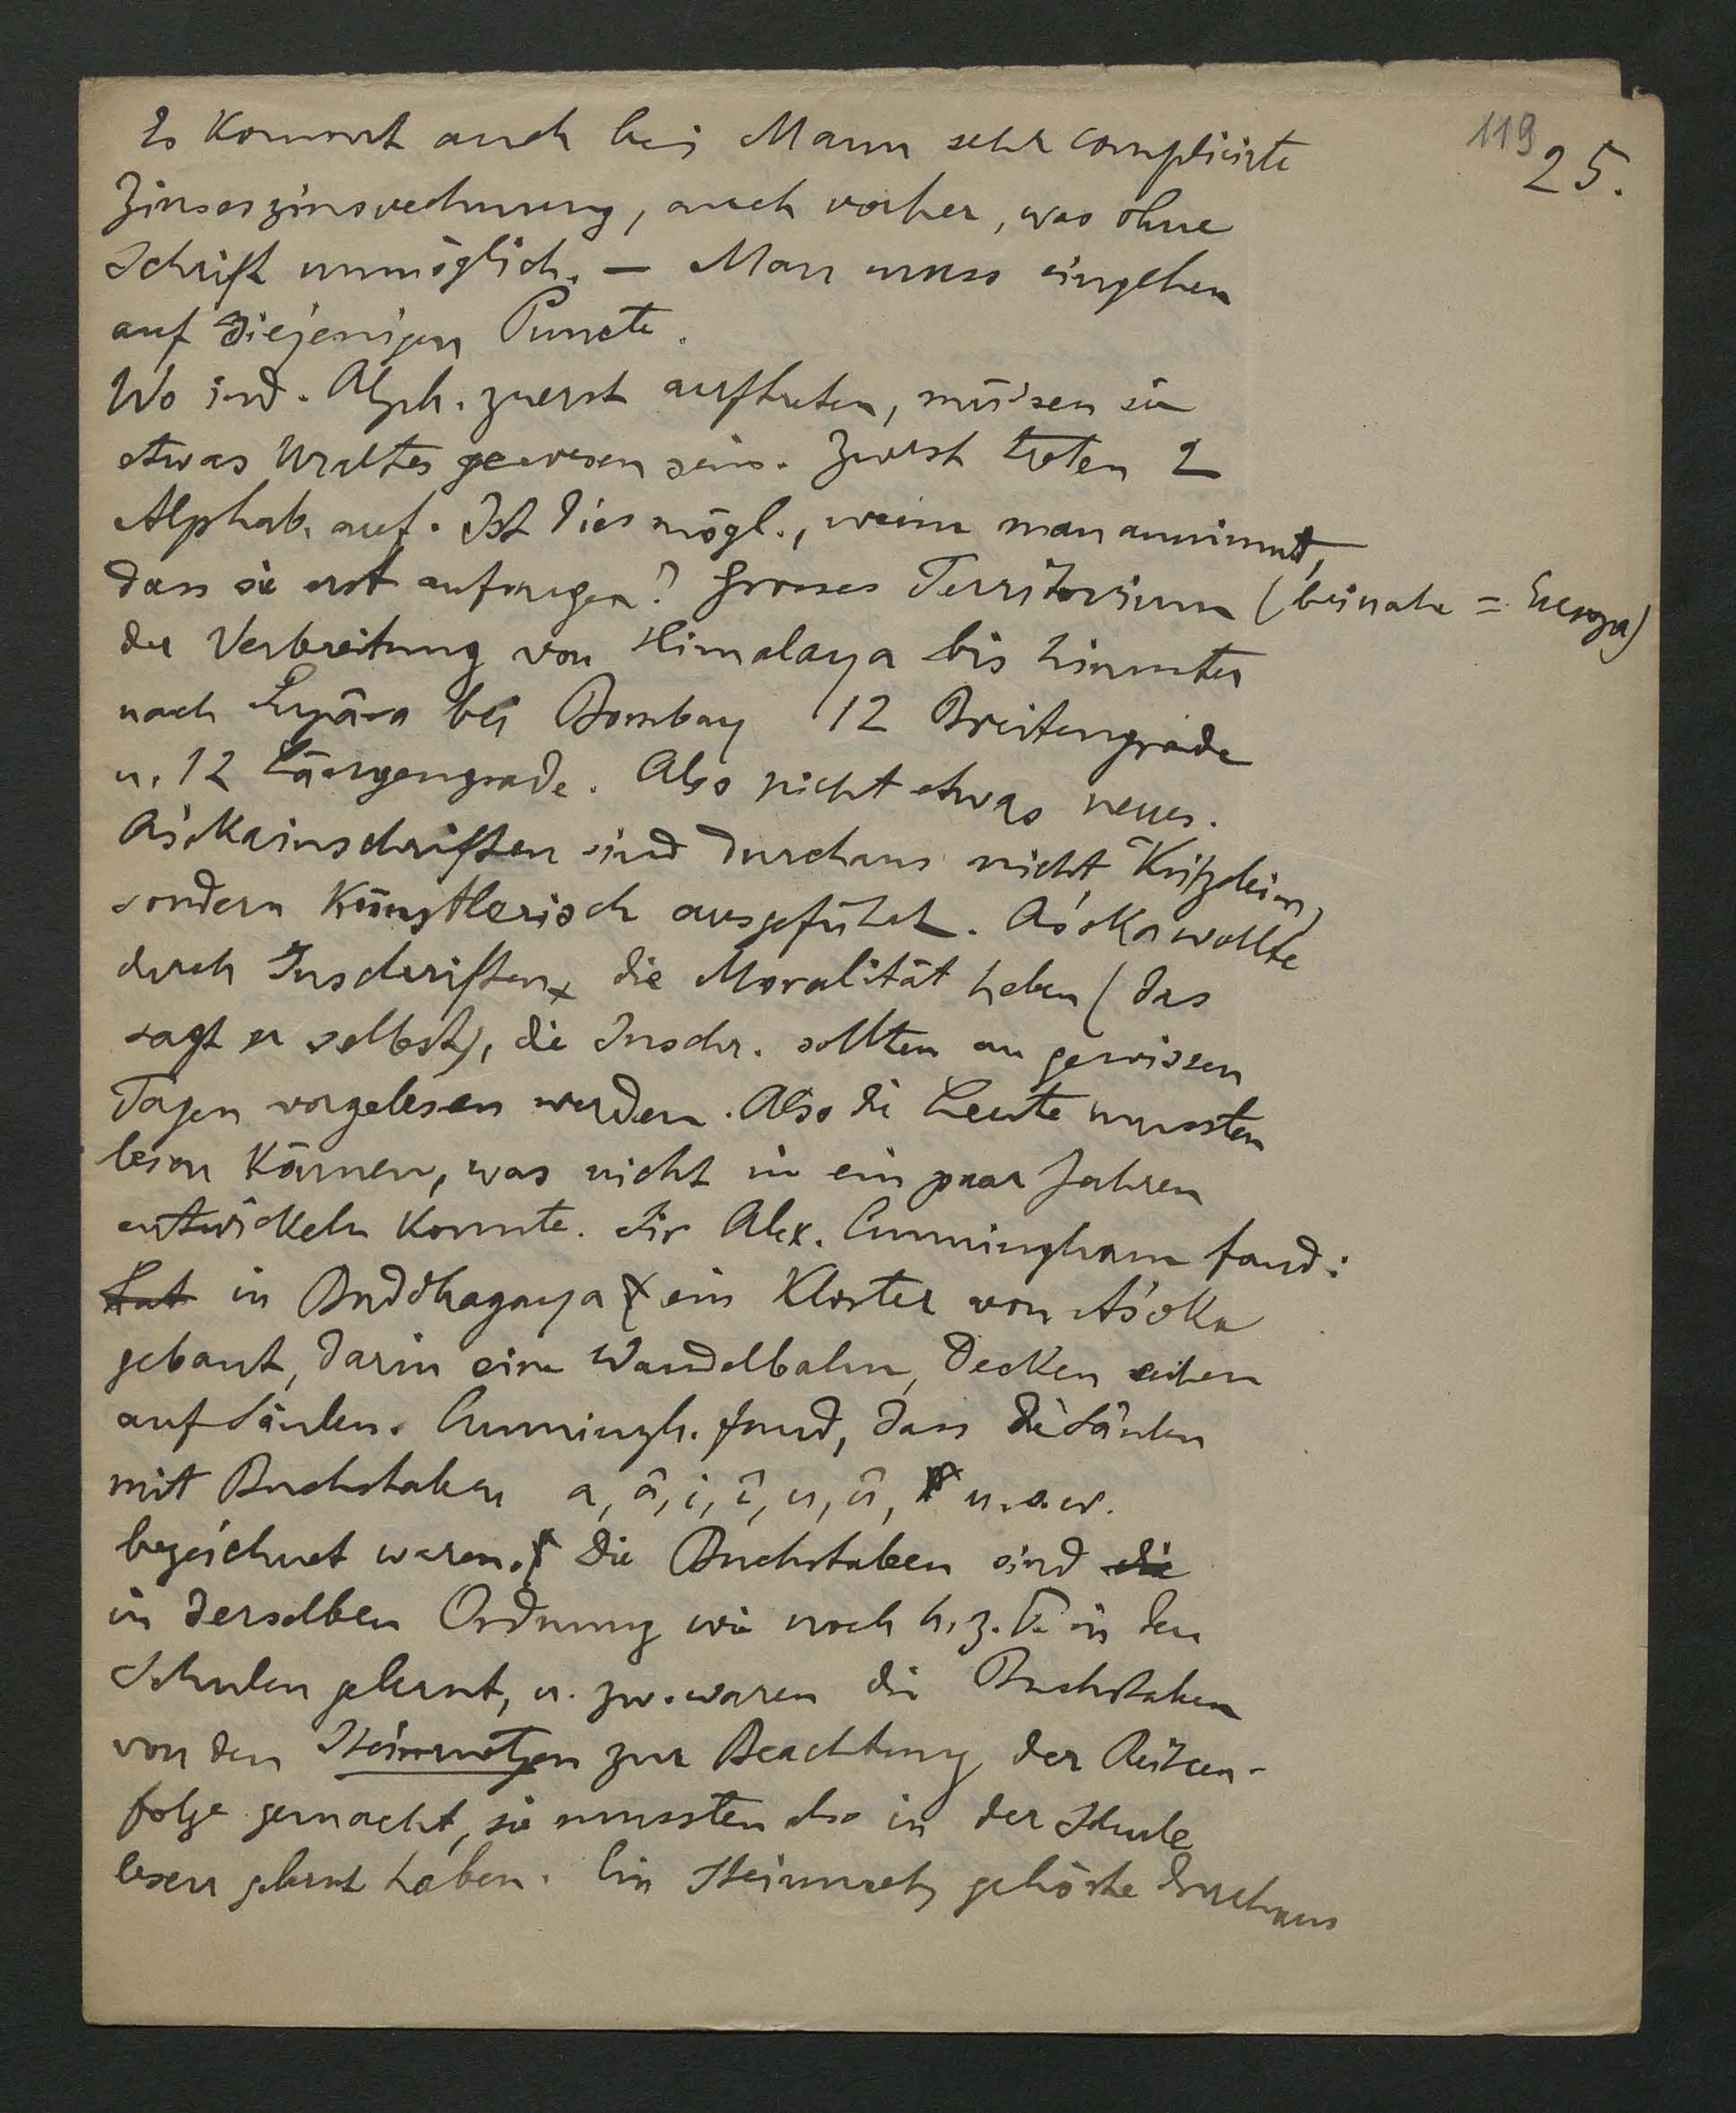 119
25.
Es kommt auch bei Manu sehr complicirte
Zinseszinsrechnung, auch vorher, was ohne
Schrift unmöglich. — Man muss eingehen
auf diejenigen Puncte.
Wo ind. Alph. zuerst auftreten, müssen sie
etwas Uraltes gewesen sein. Zuerst treten 2
Alphab. auf. Ist dies mögl., wenn man annimmt,
dass sie erst anfangen? Grosses Territorium (beinahe = Europa)
der Verbreitung von Himalaya bis hinunter
nach Supâra bei Bombay 12 Breitengrade
u. 12 Längengrade. Also nicht etwas neues.
Aśokainschriften sind durchaus nicht Kritzeleien,
sondern künstlerisch ausgeführt. Aśoka wollte
durch Inschriften die Moralität heben (das
sagt er selbst), die Inschr. sollten an gewissen
Tagen vorgelesen werden. Also die Leute mussten
lesen können, was nicht in ein paar Jahren
entwickeln konnte. Sir Alex. Cunningham fand:
hat in Buddhagaya ein Kloster von Aśoka
gebaut, darin eine Wandelbahn, Decken ruhen
auf Säulen. Cunningh. fand, dass die Säulen
mit Buchstaben a, â, i, î, u, û, u.s.w.
bezeichnet waren. Die Buchstaben sind die
in derselben Ordnung wie noch h. z. T. in den
Schulen gelernt, u. zw. waren die Buchstaben
von den Steinmetzen zur Beachtung der Reihen-
folge gemacht, sie mussten also in der Schule
lesen gelernt haben. Ein Steinmetz gehörte durchaus